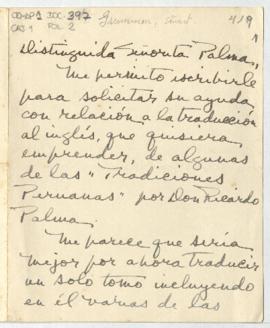 COHDP1 DOC. 397
CAJ 1 FOL. 2
4/9
1
Distinguida Señorita Palma,,
Me permito escribirle
para solicitar su ayuda
con relación a la traducción
al inglés, que quisiera
emprender, de algunas
de las "Tradiciones
Peruanas" por Don Ricardo
Palma.
Me parece que sería
mejor por ahora traducir
un solo tomo incluyendo
en él varias de las